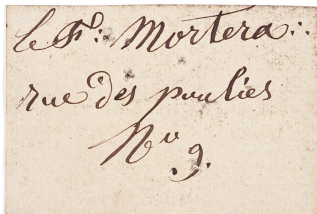 le F∴ Mortera∴
rue des poulies
No 9.